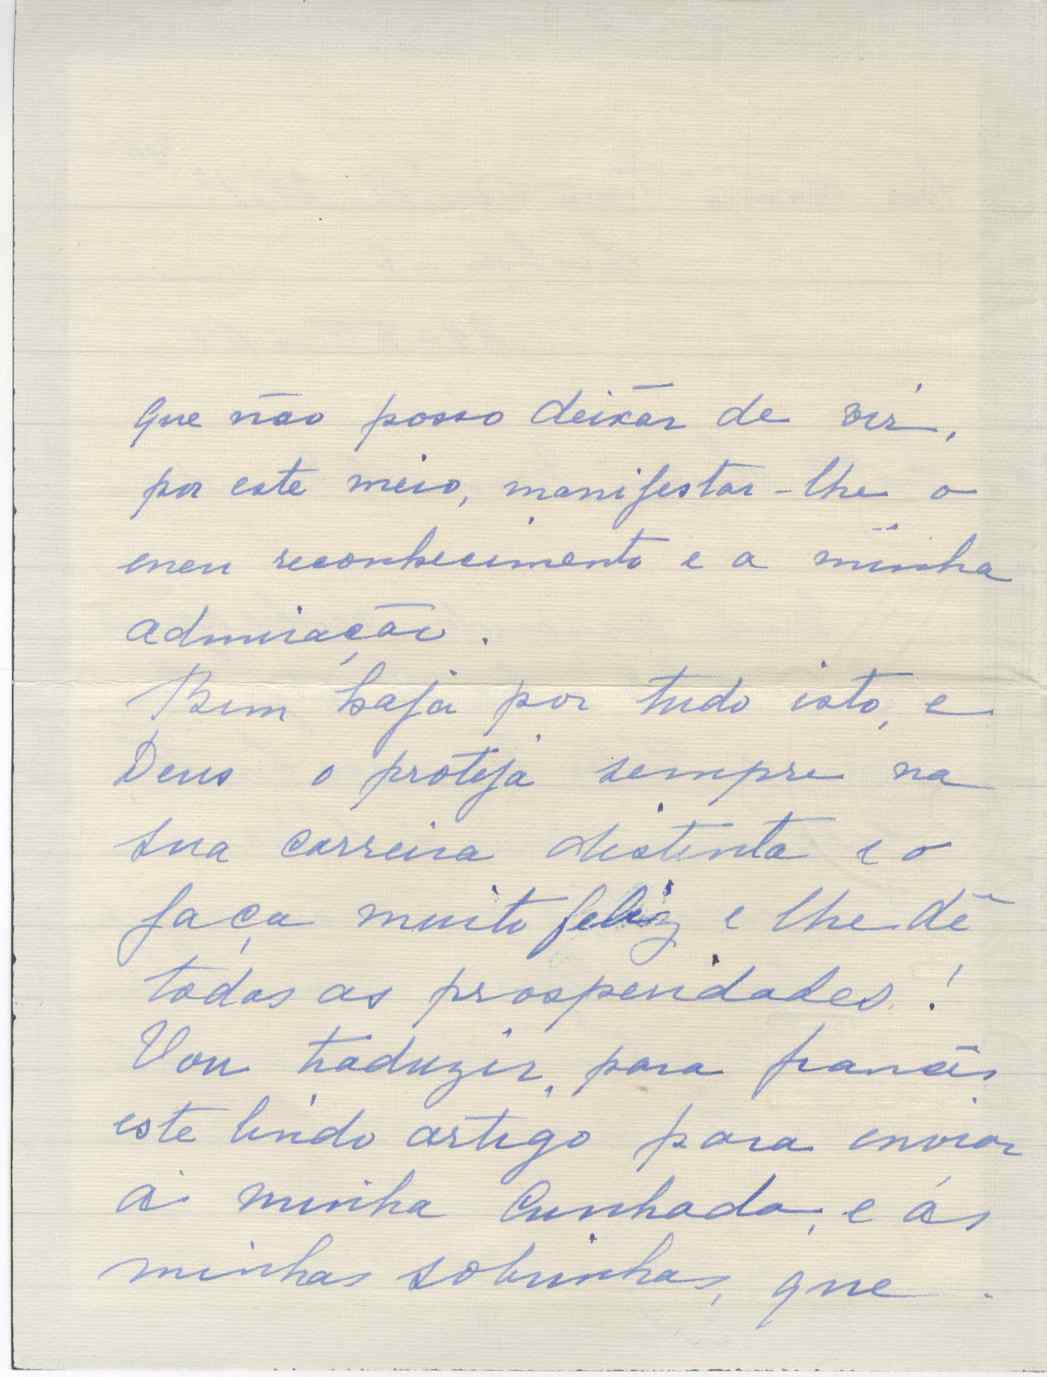 que não posso deixar de vir,
por este meio, manifestar-lhe o
meu reconhecimento e a minha
admiração.
Bem haja por tudo isto, e
Deus o proteja sempre na
sua carreira distinta e o
faça muito feliz e lhe dê
todas as prosperidades!
Vou traduzir, para francês
este lindo artigo para enviar
à minha Cunhada, e ás
minhas sobrinhas, que